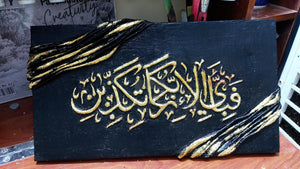 Creativity
فَبِأَيِّ آلَاءِ رَبِّكُمَا تُكَذِّبَانِ